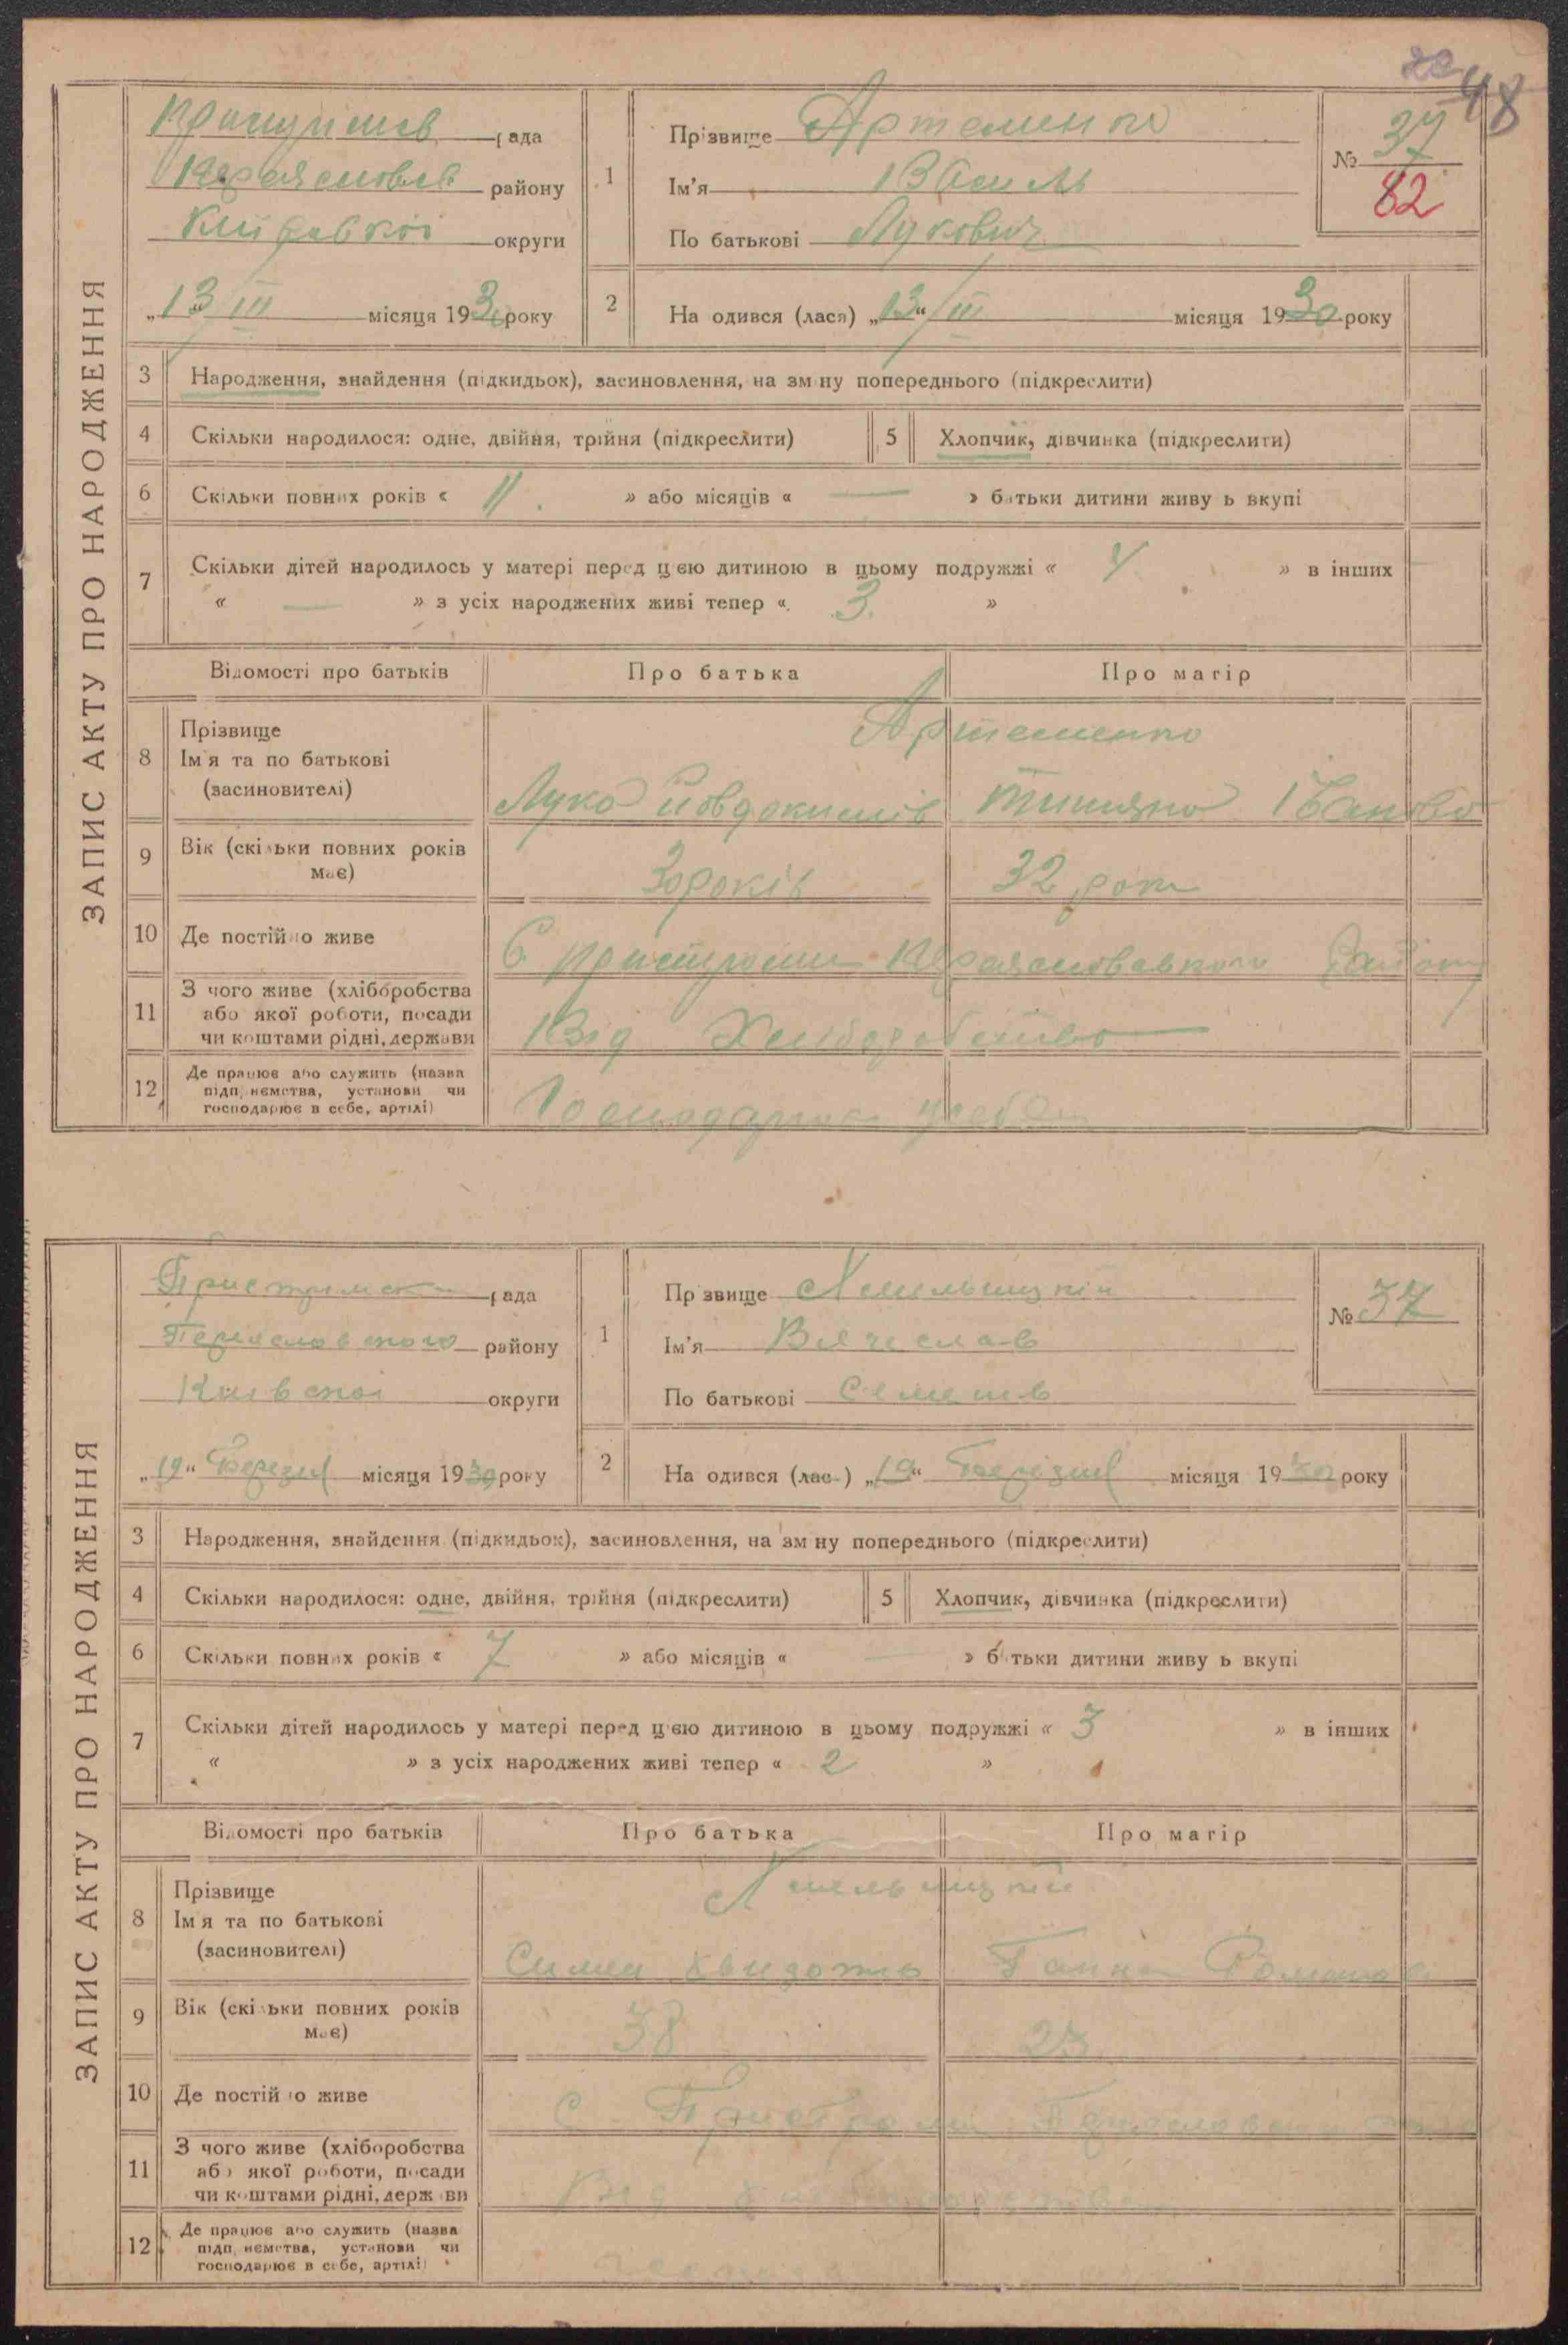 48
ЗАПИС АКТУ ПРО НАРОДЖЕННЯ
рада
району
округи
„13“/III місяця 1930 року
1
Прізвище Артеменко
Ім'я Василь
По батькові Лукович
№ 37
82
2 На одився (лася) „13“/III місяця 1930 року
3 Народження, знайдення (підкидьок), засиновлення, на зм ну попереднього (підкреслити)
4 Скільки народилося: одне, двійня, трійня (підкреслити) 5 Хлопчик, дівчинка (підкреслити)
6 Скільки повних років « 11. » або місяців « — » б тьки дитини живу ь вкупі
7 Скільки дітей народилось у матері перед цією дитиною в цьому подружжі « 4 » в інших
« — » з усіх народжених живі тепер « 3. »
Відомості про батьків Про батька Про матір
8 Прізвище
Ім я та по батькові
(засиновителі)
Артеменко
Лука Йовдокимів Титяна Іванова
9 Вік (скільки повних років має) 30 років 32 роки
10 Де постійно живе С. Пристроми Переяславського Району
11 З чого живе (хліборобства
або якої роботи, посади
чи коштами рідні, держави
Від Хліборобства
12 Де працює або служить (назва
підп. ємства, установи чи
господарює в себе, артілі)
Господарює у себе
ЗАПИС АКТУ ПРО НАРОДЖЕННЯ
Пристромська рада
Переяславського району
Київської округи
„19“ Березня місяця 1930 року
1
Пр звище Хмельницкий
Ім'я Вячеслав
По батькові Семенів
№ 37
2 На одився (лас ) „19“ Березня місяця 1930 року
3 Народження, знайдення (підкидьок), засиновлення, на зм ну попереднього (підкреслити)
4 Скільки народилося: одне, двійня, трійня (підкреслити) 5 Хлопчик, дівчинка (підкреслити)
6 Скільки повних років « 7 » або місяців « — » б тьки дитини живу ь вкупі
7 Скільки дітей народилось у матері перед цією дитиною в цьому подружжі « 3 » в інших
« » з усіх народжених живі тепер « 2 »
Відомості про батьків Про батька Про матір
8 Прізвище
Ім я та по батькові
(засиновителі)
Хмельницкий
Ганна Романова
9 Вік (скільки повних років має) 38 23
10 Де постійно живе С. Пристроми
11 З чого живе (хліборобства
або якої роботи, посади
чи коштами рідні, держави
Від
12 Де працює або служить (назва
підп. ємства, установи чи
господарює в себе, артілі)